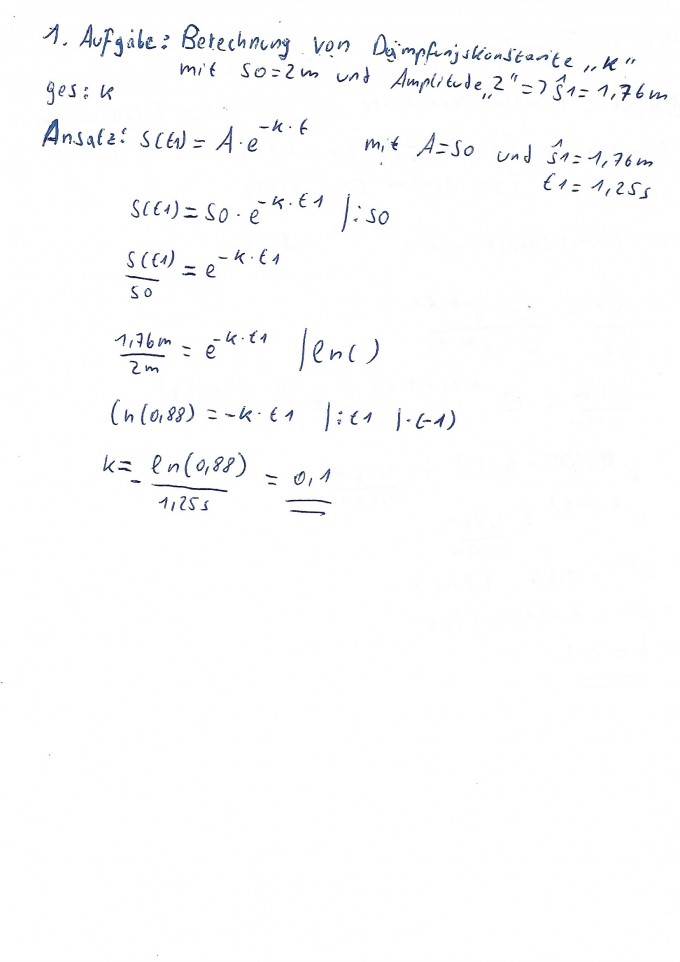 1. Aufgabe: Berechnung von Dämpfungskonstante „k"
mit s0=2m und Amplitude „2" => ŝ1=1,76m
ges: k
Ansatz: s(t1) = A·e^{-k·t} mit A=s0 und ŝ1=1,76m
t1=1,25s
s(t1) = s0·e^{-k·t1} |:s0
s(t1)/s0 = e^{-k·t1}
1,76m/2m = e^{-k·t1} |ln()
ln(0,88) = -k·t1 |:t1 |·(-1)
k = - ln(0,88)/1,25s = 0,1